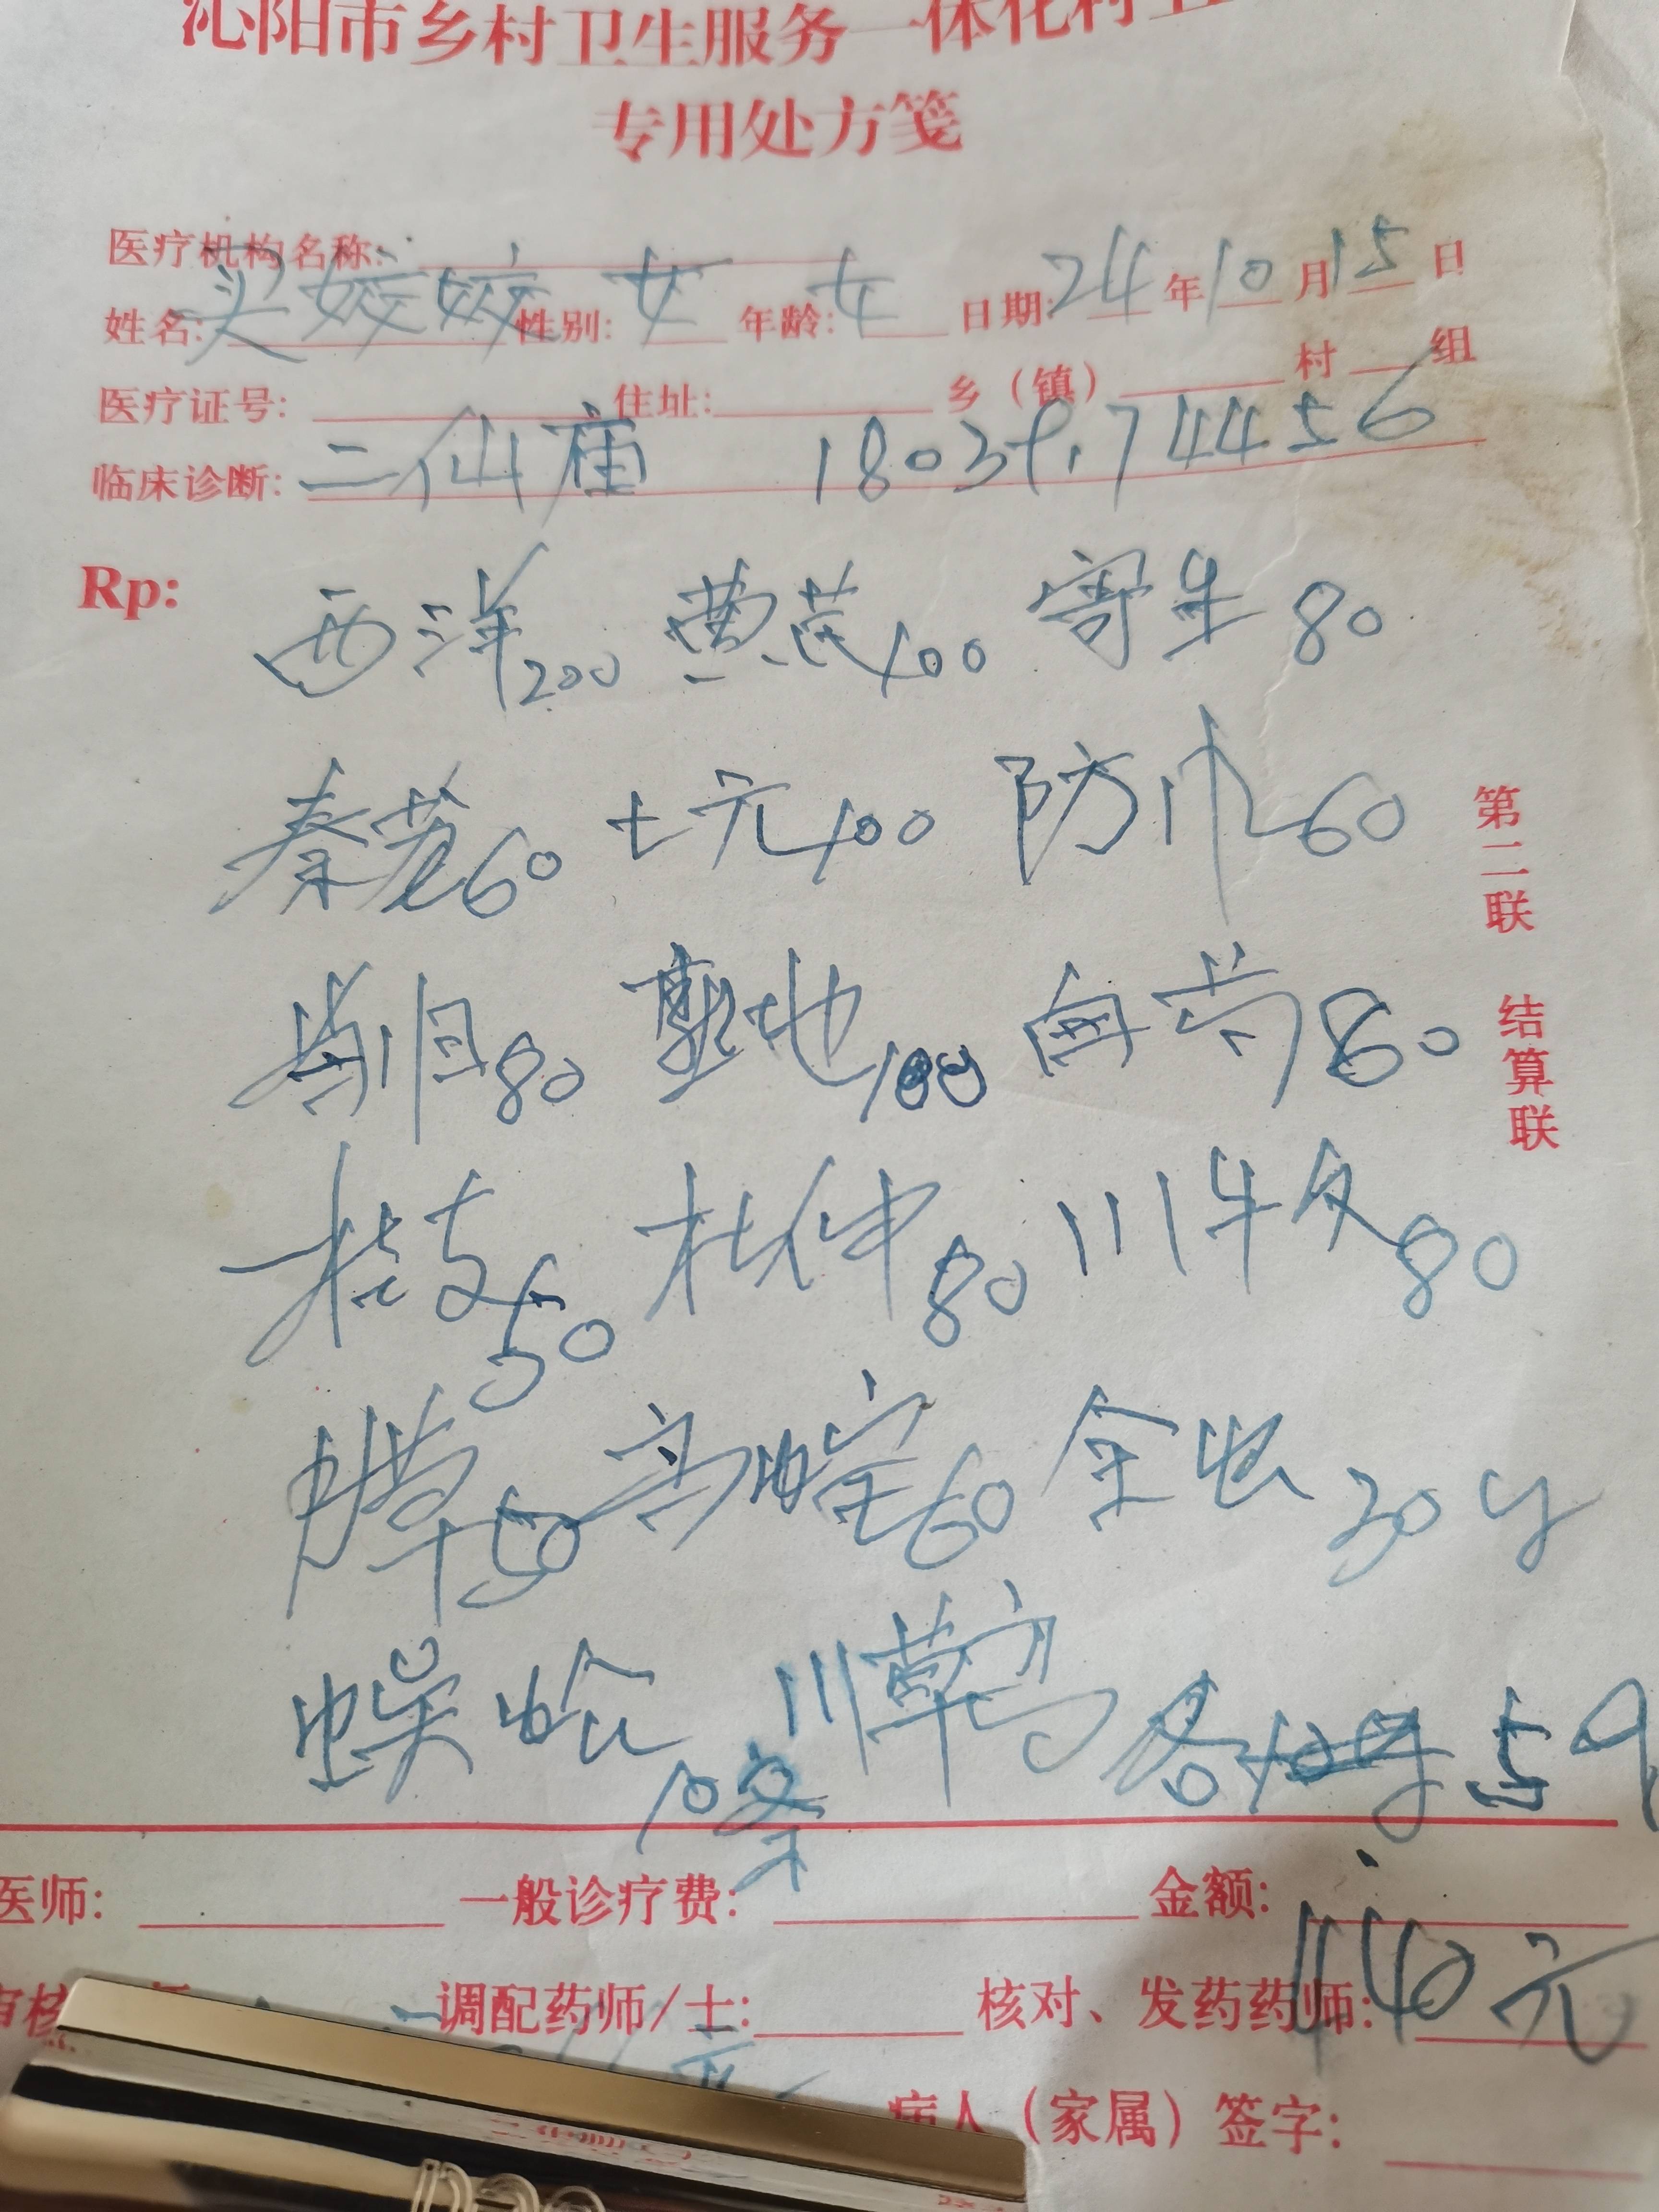 沁阳市乡村卫生服务一体化村卫
专用处方笺
医疗机构名称:
姓名: 买姣姣 性别: 女 年龄: 女 日期: 24 年 10 月 15 日
医疗证号: 住址: 乡（镇） 村 组
临床诊断: 二仙庙
Rp:
西洋200 黄芪100 寄生 80
秦艽60 土元100 防风60
当归80 熟地100 白芍80
桂支50 杜仲80 川牛夕80
60 全虫 30
蜈蚣10条 川草乌各 5g
第二联 结算联
医师: 一般诊疗费: 金额: 440元
审核 调配药师/士: 核对、发药药师:
病人（家属）签字: